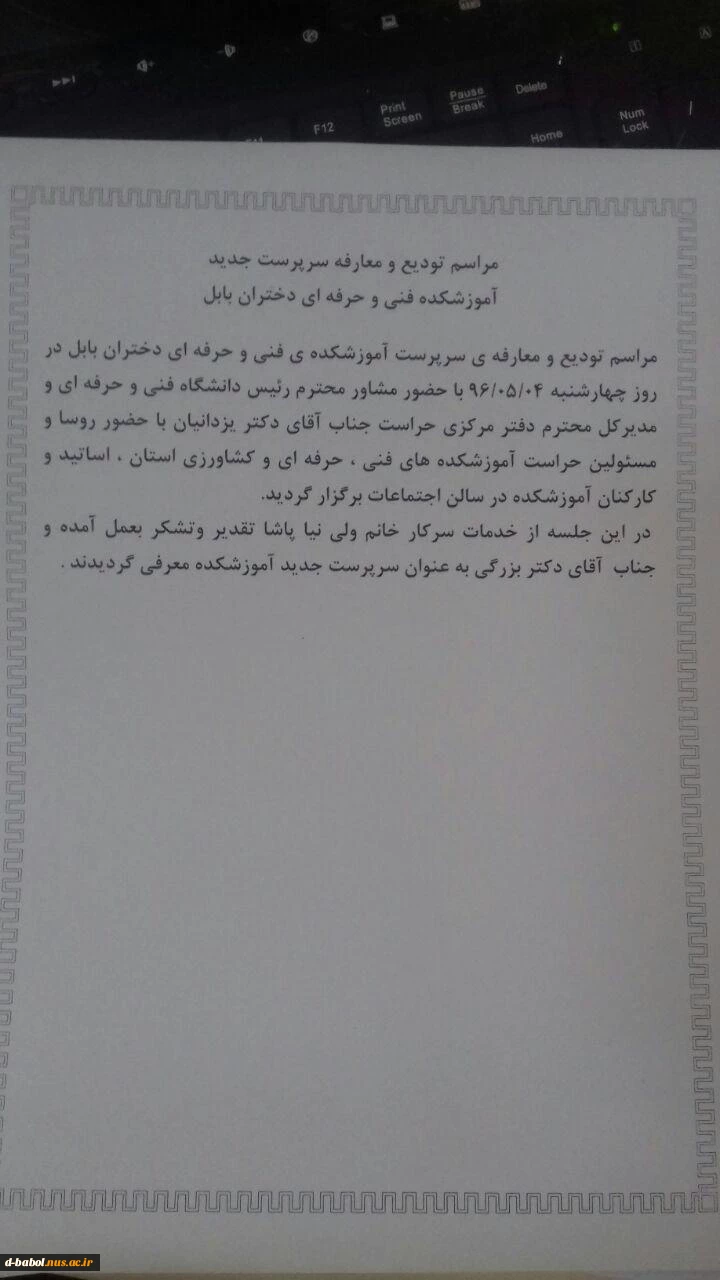 Delete
Pause
Break
Print
Screen
F12
Num
Lock
Home
مراسم تودیع و معارفه سرپرست جدید
آموزشکده فنی و حرفه ای دختران بابل
مراسم تودیع و معارفه ی سرپرست آموزشکده ی فنی و حرفه ای دختران بابل در
روز چهارشنبه ۹۶/۰۵/۰۴ با حضور مشاور محترم رئیس دانشگاه فنی و حرفه ای و
مدیرکل محترم دفتر مرکزی حراست جناب آقای دکتر یزدانیان با حضور روسا و
مسئولین حراست آموزشکده های فنی ، حرفه ای و کشاورزی استان ، اساتید و
کارکنان آموزشکده در سالن اجتماعات برگزار گردید.
در این جلسه از خدمات سرکار خانم ولی نیا پاشا تقدیر وتشکر بعمل آمده و
جناب آقای دکتر بزرگی به عنوان سرپرست جدید آموزشکده معرفی گردیدند .
d-babol.nus.ac.ir